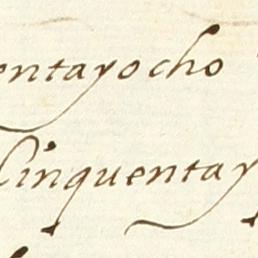 entayocho
Cinquentay